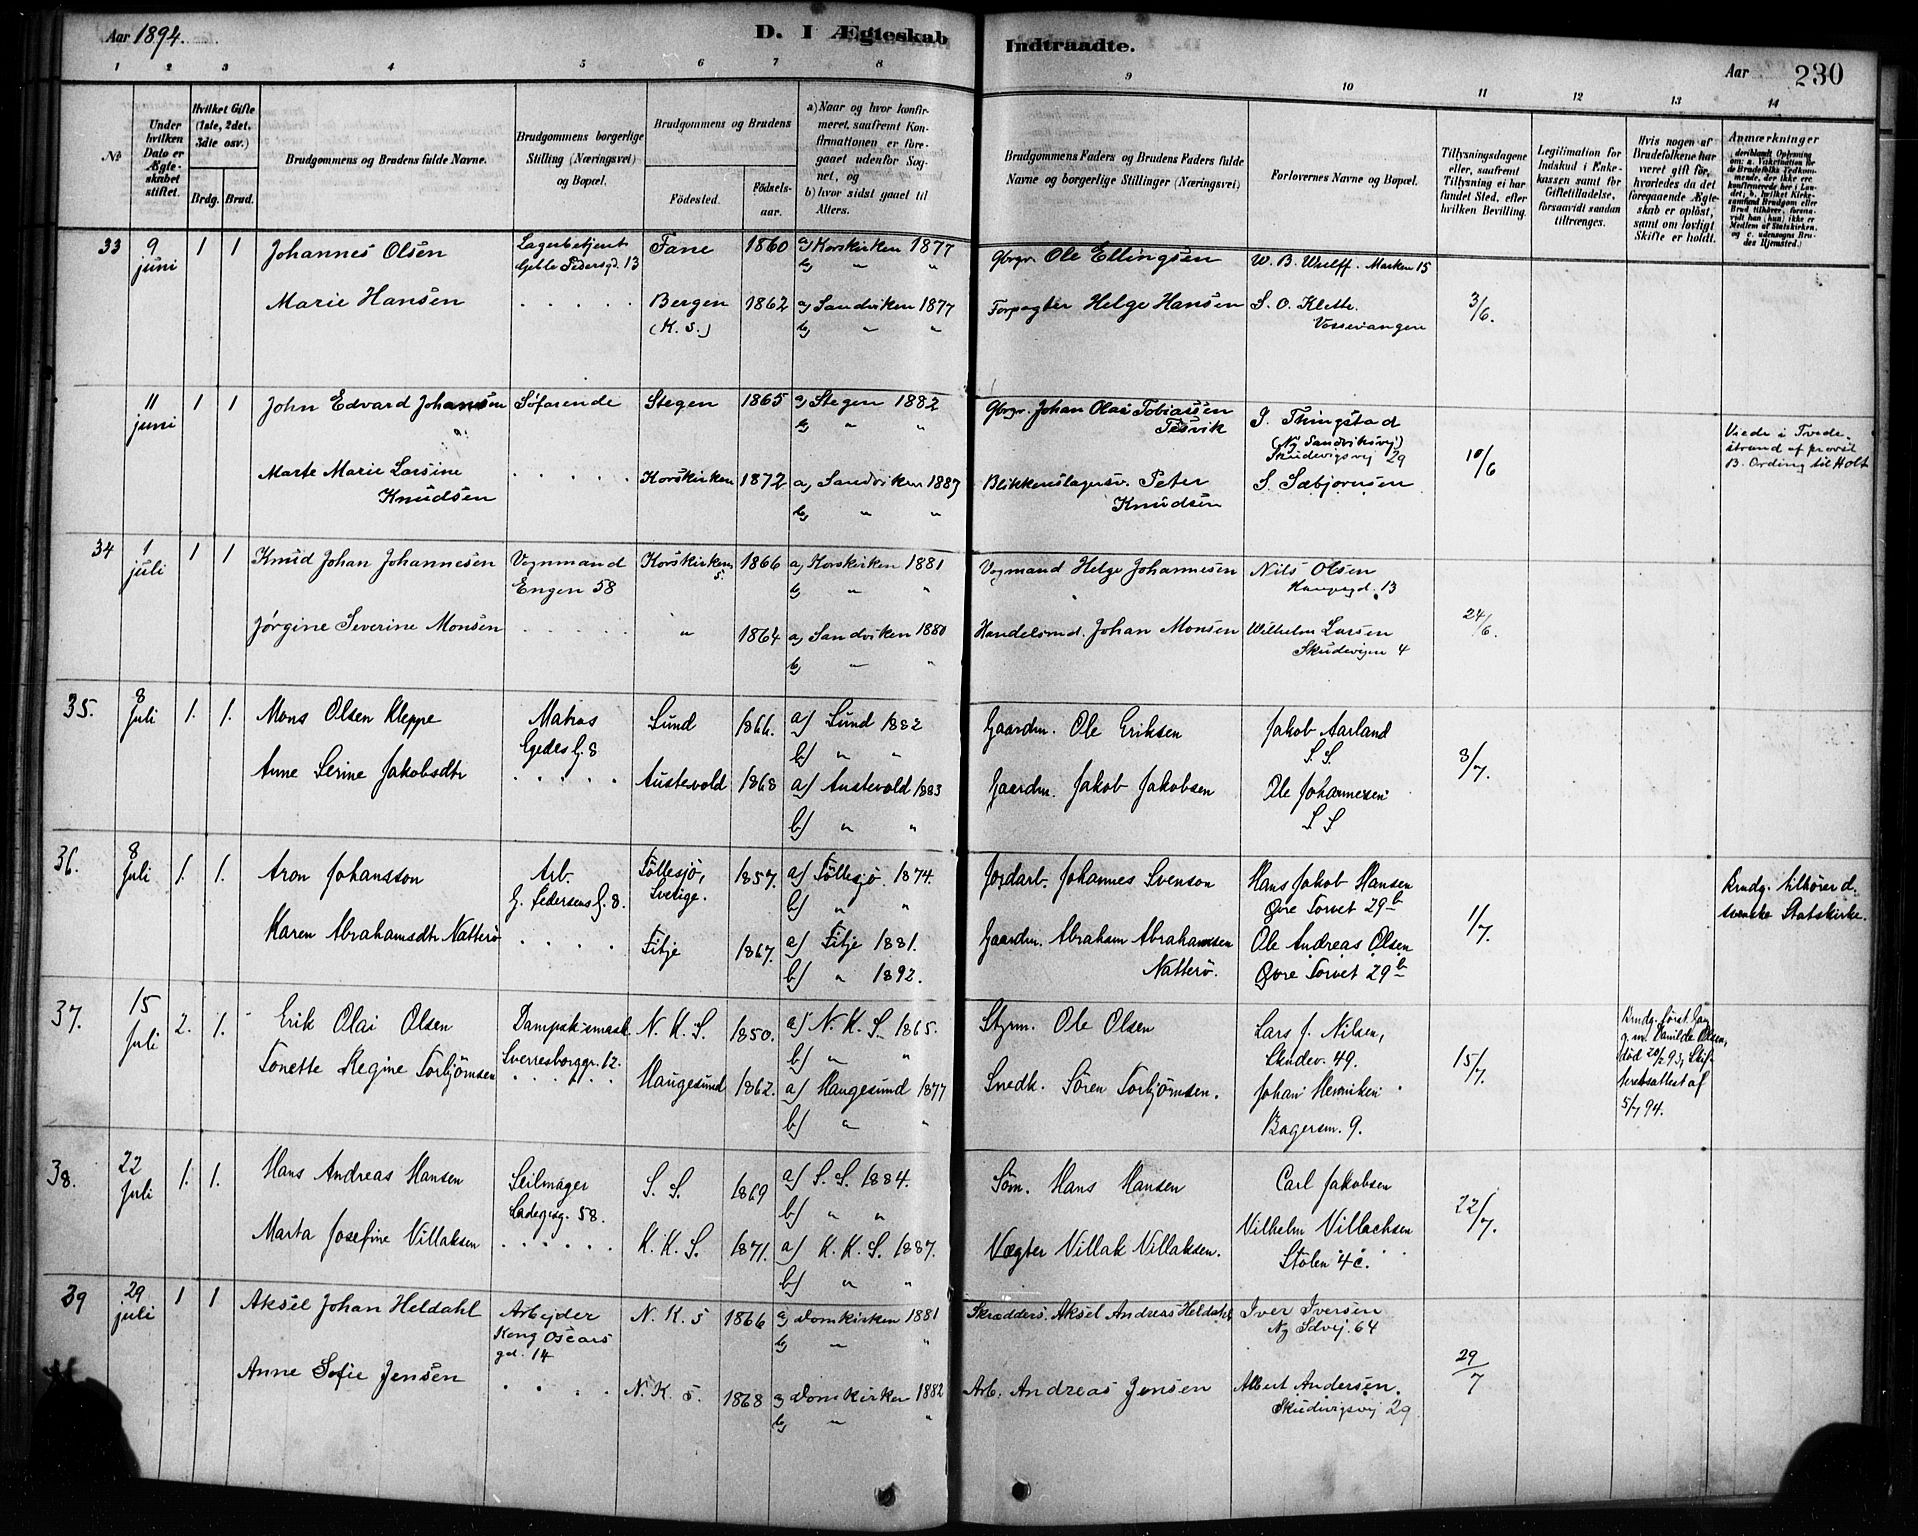 Aar 1894.
D. I Ægteskab
Indtraadte.
Aar
230
1 2 3 4 5 6 7 8
9 10 11 12 13 14
No
Under hvilken Dato er Ægteskabet stiftet.
Hvilket Gifte (1ste, 2det, 3die osv.)
Brdg. Brud.
Brudgommens og Brudens fulde Navne.
Brudgommens borgerlige Stilling (Næringsvei) og Bopæl.
Brudgommens og Brudens
Födested.
Födsels-aar.
a) Naar og hvor konfirmeret, saafremt Konfirmationen er foregaaet udenfor Sognet, og
b) hvor sidst gaaet til Alters.
Brudgommens Faders og Brudens Faders fulde Navne og borgerlige Stillinger (Næringsvei)
Forlovernes Navne og Bopæl.
Tillysningsdagene eller, saafremt Tillysning ei har fundet Sted, efter hvilken Bevilling.
Legitimation for Indskud i Enkekassen samt for Giftetilladelse, forsaavidt saadan tiltrænges.
Hvis nogen af Brudefolkene har været gift før, hvorledes da det foregaaende Ægteskab er opløst, samt om lovligt Skifte er holdt.
Anmærkninger
33 9 juni 1 1 Johannes Olsen Lagerbetjent Geble Pedersgd. 13 Fane 1860 a) Korskirken 1877 b) " " Gbrgr. Ole Ellingsen W. B. Wulff. Marken 15
Marie Hansen . . . . . Bergen (K. S.) 1862 a) Sandviken 1877 b) " " Forpagter Helge Hansen S. O. Klette Vossevangen 3/6.
11 juni 1 1 John Edvard Johansen Søfarende Stegen 1865 a) Stegen 1882 b) " " Gbrgr. Johan Olai Tobiassen Tesvik S. Thingstad (Ny Sandviksvej) Skudevigsvej 29 10/6
Marte Marie Larsine Knudsen . . . . . Korskirken 1872 a) Sandviken 1887 b) " " Blikkenslagersv. Peter Knudsen S. Sæbjørnsen
Viede i Tvedestrand af provst B. Ording til Holt
34 1 juli 1 1 Knud Johan Johannesen Vognmand Engen 58 Korskirkens 1866 a) Korskirken 1881 b) " " Vogmand Helge Johannesen Nils Olsen 13
Jørgine Severine Monsen . . . . . " 1864 a) Sandviken 1880 b) " " Handelsmd. Johan Monsen Wilhelm Larsen Skudevigen 4 24/6.
35. 8 Juli 1. 1. Mons Olsen Kleppe Matros Egedes G. 8 Sund 1866. a) Sund 1882 b) " " Gaardm. Ole Eriksen Jakob Aarland S. S.
Anne Serine Jakobsdtr . . . . . Austevold 1868 a) Austevold 1883 b) " " Gaardm. Jakob Jakobsen Ole Johannesen S S 8/7.
36. 8 Juli 1. 1. Aron Johansson Arb. G. Pedersens G. 8. Föllesjö, Sverige. 1857. a) Föllesjö. 1874. b) " " Jordarb. Johannes Svenson Hans Jakob Hansen Øvre Torvet 29b
Karen Abrahamsdtr Natterö . . . . . Fitje 1867. a) Fitje 1881. b) " 1892. Gaardm. Abraham Abrahamsen Natterö. Ole Andreas Olsen Øvre Torvet 29b 1/7.
Brudg. tilhører d. svenske Statskirke.
37. 15 Juli 2. 1. Erik Olai Olsen Dampskibsmask Sverresborggr. 12. N. K. S. 1850. a) N. K. S. 1865. b) " " Styrm. Ole Olsen Lars J. Nilsen, Skudev. 49.
Tonette Regine Torbjörnsen . . . . . Haugesund 1862. a) Haugesund 1877 b) " " Snedk. Sören Torbjörnsen. Johan Henriksen Bagersm. 9. 15/7.
Brudg. først Gang g. m. Olsen, död 20/2 93, Skifteretsattest af 5/7 94.
38. 22 Juli 1. 1. Hans Andreas Hansen Seilmager Ladegsg. 58. S. S. 1869 a) S. S. 1884. b) " " Söm. Hans Hansen Carl Jakobsen
Marta Josefine Villaksen . . . . . K. K. S. 1871. a) K. K. S. 1887. b) " " Vægter Villak Villaksen. Vilhelm Villachsen Stølen 4c. 22/7.
39 29 juli 1 1 Aksel Johan Heldahl Arbejder Kong Oscars gd. 14 N. K. S 1866 a) Domkirken 1881 b) " " Skrædders. Aksel Andreas Heldahl Iver Iversen Ny Sdvej. 64
Anne Sofie Jensen . . . . N. K. S. 1868 a) Domkirken 1882 b) " " Arb. Andreas Jensen Albert Andersen. Skudevigsvej 29 29/7